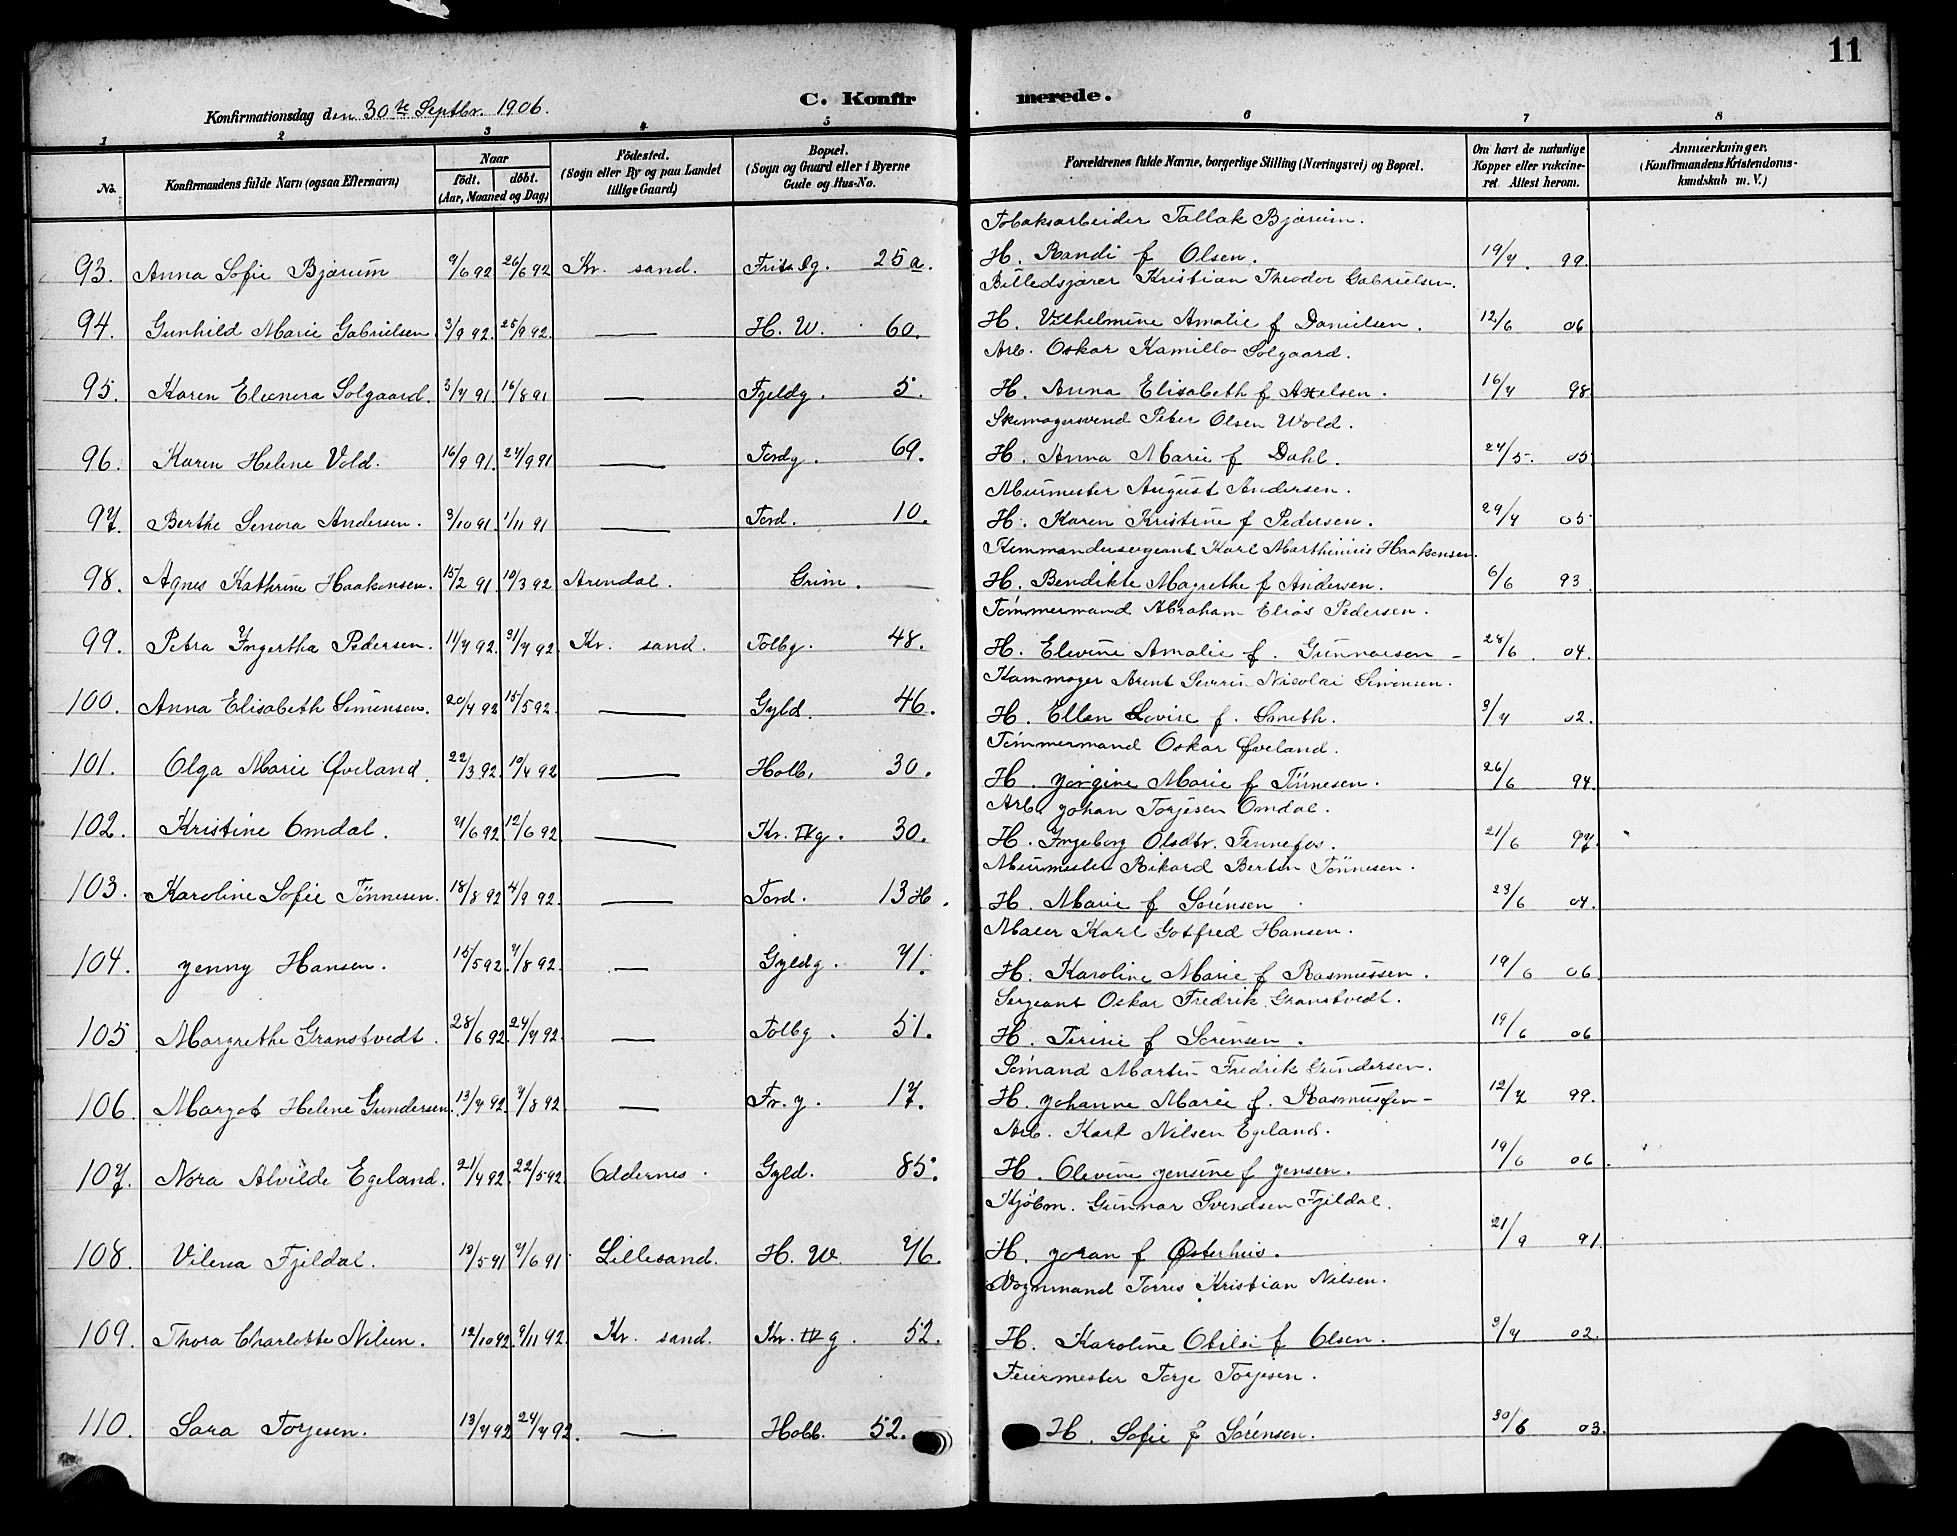 11
Konfirmationsdag den 30te Septbr. 1906.
C. Konfirmerede.
1 2 3 4 5 6 7 8
No. Konfirmandens fulde Navn (ogsaa Efternavn) Naar født. døbt. (Aar, Maaned og Dag) Fødested. (Sogn eller By og paa Landet tillige Gaard) Bopæl. (Sogn og Gaard eller i Byerne Gade og Hus-No. Forældrenes fulde Navne, borgerlige Stilling (Næringsvei) og Bopæl. Om havt de naturlige Kopper eller vakcineret. Attest herom. Anmærkninger. (Konfirmandens Kristendomskundskab m. V.)
Tobaksarbeider Tallak Bjærum.
93. Anna Sofie Bjærum 9/6 92 26/6 92 Kr. sand. Fritz. Ig. 25 a. H. Randi f Olsen. 19/7. 99.
Billedskjærer Kristian Theodor Gabrielsen.
94. Gunhild Marie Gabrielsen. 3/9 92. 25/9 92. — H. W. 60. H. Vilhelmine Amalie f Danielsen. 12/6 06
Arb. Oskar Kamillo Solgaard.
95. Karen Eleonora Solgaard. 3/7 91. 16/8 91 — Fjeldg. 5. H. Anna Elisabeth f Axelsen. 16/7 98.
Skomagersvend Peter Olsen Wold.
96. Karen Helene Vold. 16/9 91. 27/9 91 — Tordg. 69. H. Anna Marie f Dahl. 24/5. 05.
Murmester August Andersen.
97. Berthe Senora Andersen. 3/10 91. 1/11 91 — Tord. 10. H. Karen Kristine f Pedersen. 29/7 05
Kommandersergeant Karl Marthinius Haakonsen.
98. Agnes Kathrine Haakonsen. 15/2 91. 10/3 92 Arendal. Grim. — H. Bendikte Magrethe f Andersen. 6/6 93.
Tømmermand Abraham Elias Pedersen.
99. Petra Ingertha Pedersen. 11/7 92. 31/7 92. Kr. sand. Tolbg. 48. H. Elevine Amalie f. Gunnarsen - 28/6. 04.
Kammager Arent Severin Nicolai Simonsen.
100. Anna Elisabeth Simonsen. 20/4 92 15/5 92. — Gyld. 46. H. Ellen Lovise f. Smith. 3/7 02.
Tømmermand Oskar Øveland.
101. Olga Marie Øveland. 22/3 92. 10/4 92 — Holb. 30. H. Jørgine Marie f Tønnesen. 26/6 94.
Arb. Johan Torjesen Omdal.
102. Kristine Omdal. 7/6 92 12/6 92 — Kr. IVg. 30. H. Ingeborg Olsdtr. Fennefos. 21/6 97.
Murmester Rikard Bertin Tønnesen.
103. Karoline Sofie Tønnesen. 18/8 92 4/9 92. — Tord. 13 H. H. Marie f Sørensen 23/6 04.
Maler Karl Gotfred Hansen.
104. Jenny Hansen. 15/5 92. 7/8 92. — Gyldg. 71. H. Karoline Marie f Rasmussen. 19/6 06.
Sergeant Oskar Fredrik Granstvedt.
105 Margrethe Granstvedt. 28/6 92. 24/7 92. — Tolbg. 51. H. Tirine f Sørensen. 19/6 06
Sømand Martin Fredrik Gundersen.
106. Margot Helene Gundersen. 13/7 92. 7/8 92. — Fr. g. 17. H. Johanne Marie f. Rasmussen - 12/7 99.
Arb. Karl Nilsen Egeland.
107. Nora Alvilde Egeland. 21/4 92. 22/5 92. Oddernes. Gyld. 85. H. Olevine Jensine f Jensen. 19/6 06.
Kjøbm. Gunnar Svendsen Fjeldal.
108. Vilena Fjeldal. 13/5 91 7/6 91 Lillesand. H. W. 76. H. Joran f Østerhus. 21/9 91.
Vognmand Torris Kristian Nilsen.
109. Thora Charlotte Nilsen. 12/10 92. 9/11 92. Kr. sand. Kr. IVg. 52. H. Karoline Otilie f Olsen. 3/7 02.
Feiermester Torje Torjesen.
110. Sara Torjesen. 13/7 92 24/7 92. — Holb. 52. H. Sofie f Sørensen. 30/6 03.